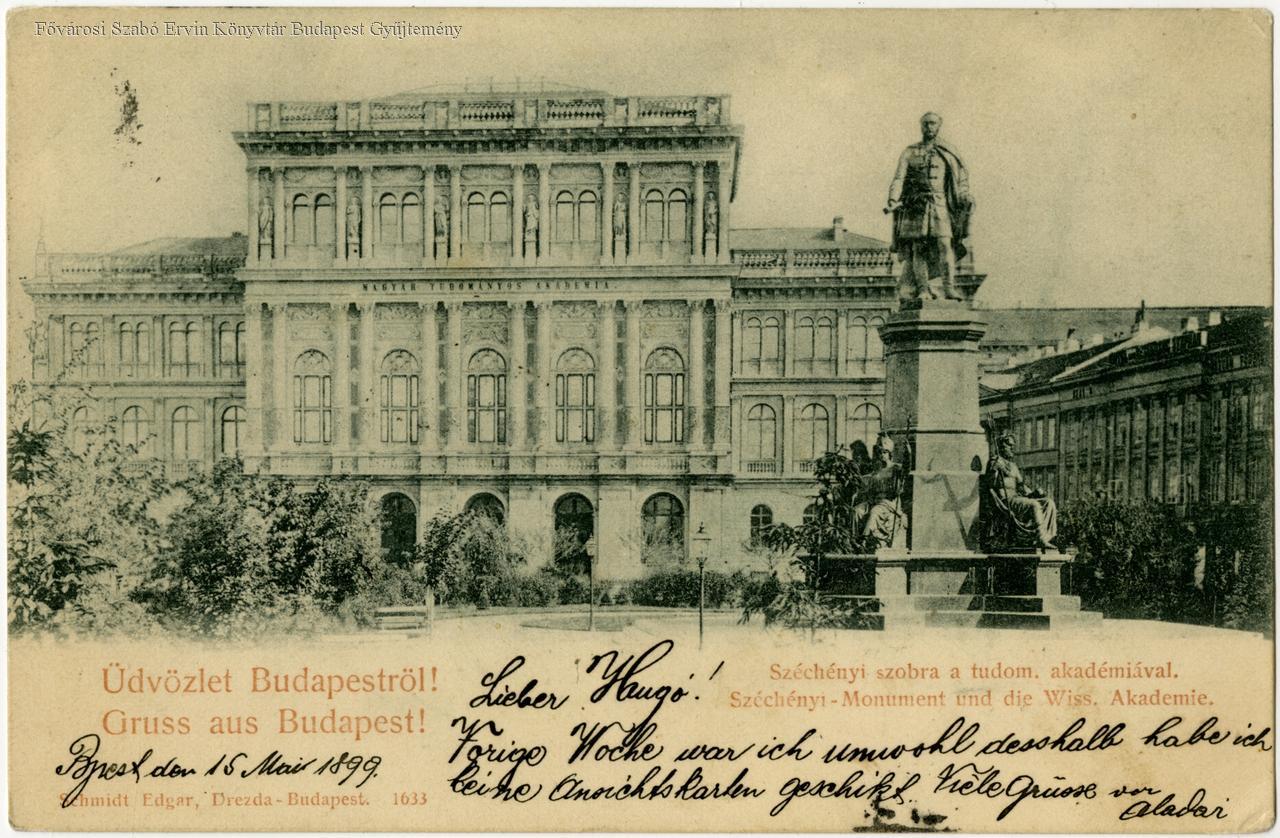 Fővárosi Szabó Ervin Könyvtár Budapest Gyűjtemény
MAGYAR TUDOMÁNYOS AKADEMIA.
Üdvözlet Budapeströl!
Gruss aus Budapest!
Széchényi szobra a tudom. akadémiával.
Széchényi-Monument und die Wiss. Akademie.
Lieber Haugó!
Vorige Woche war ich unwohl desshalb habe ich
keine Ansichtskarten geschikt. Viele Grüsse von
Aladar
Bpest, den 15 Mai 1899.
Schmidt Edgar, Drezda-Budapest. 1633